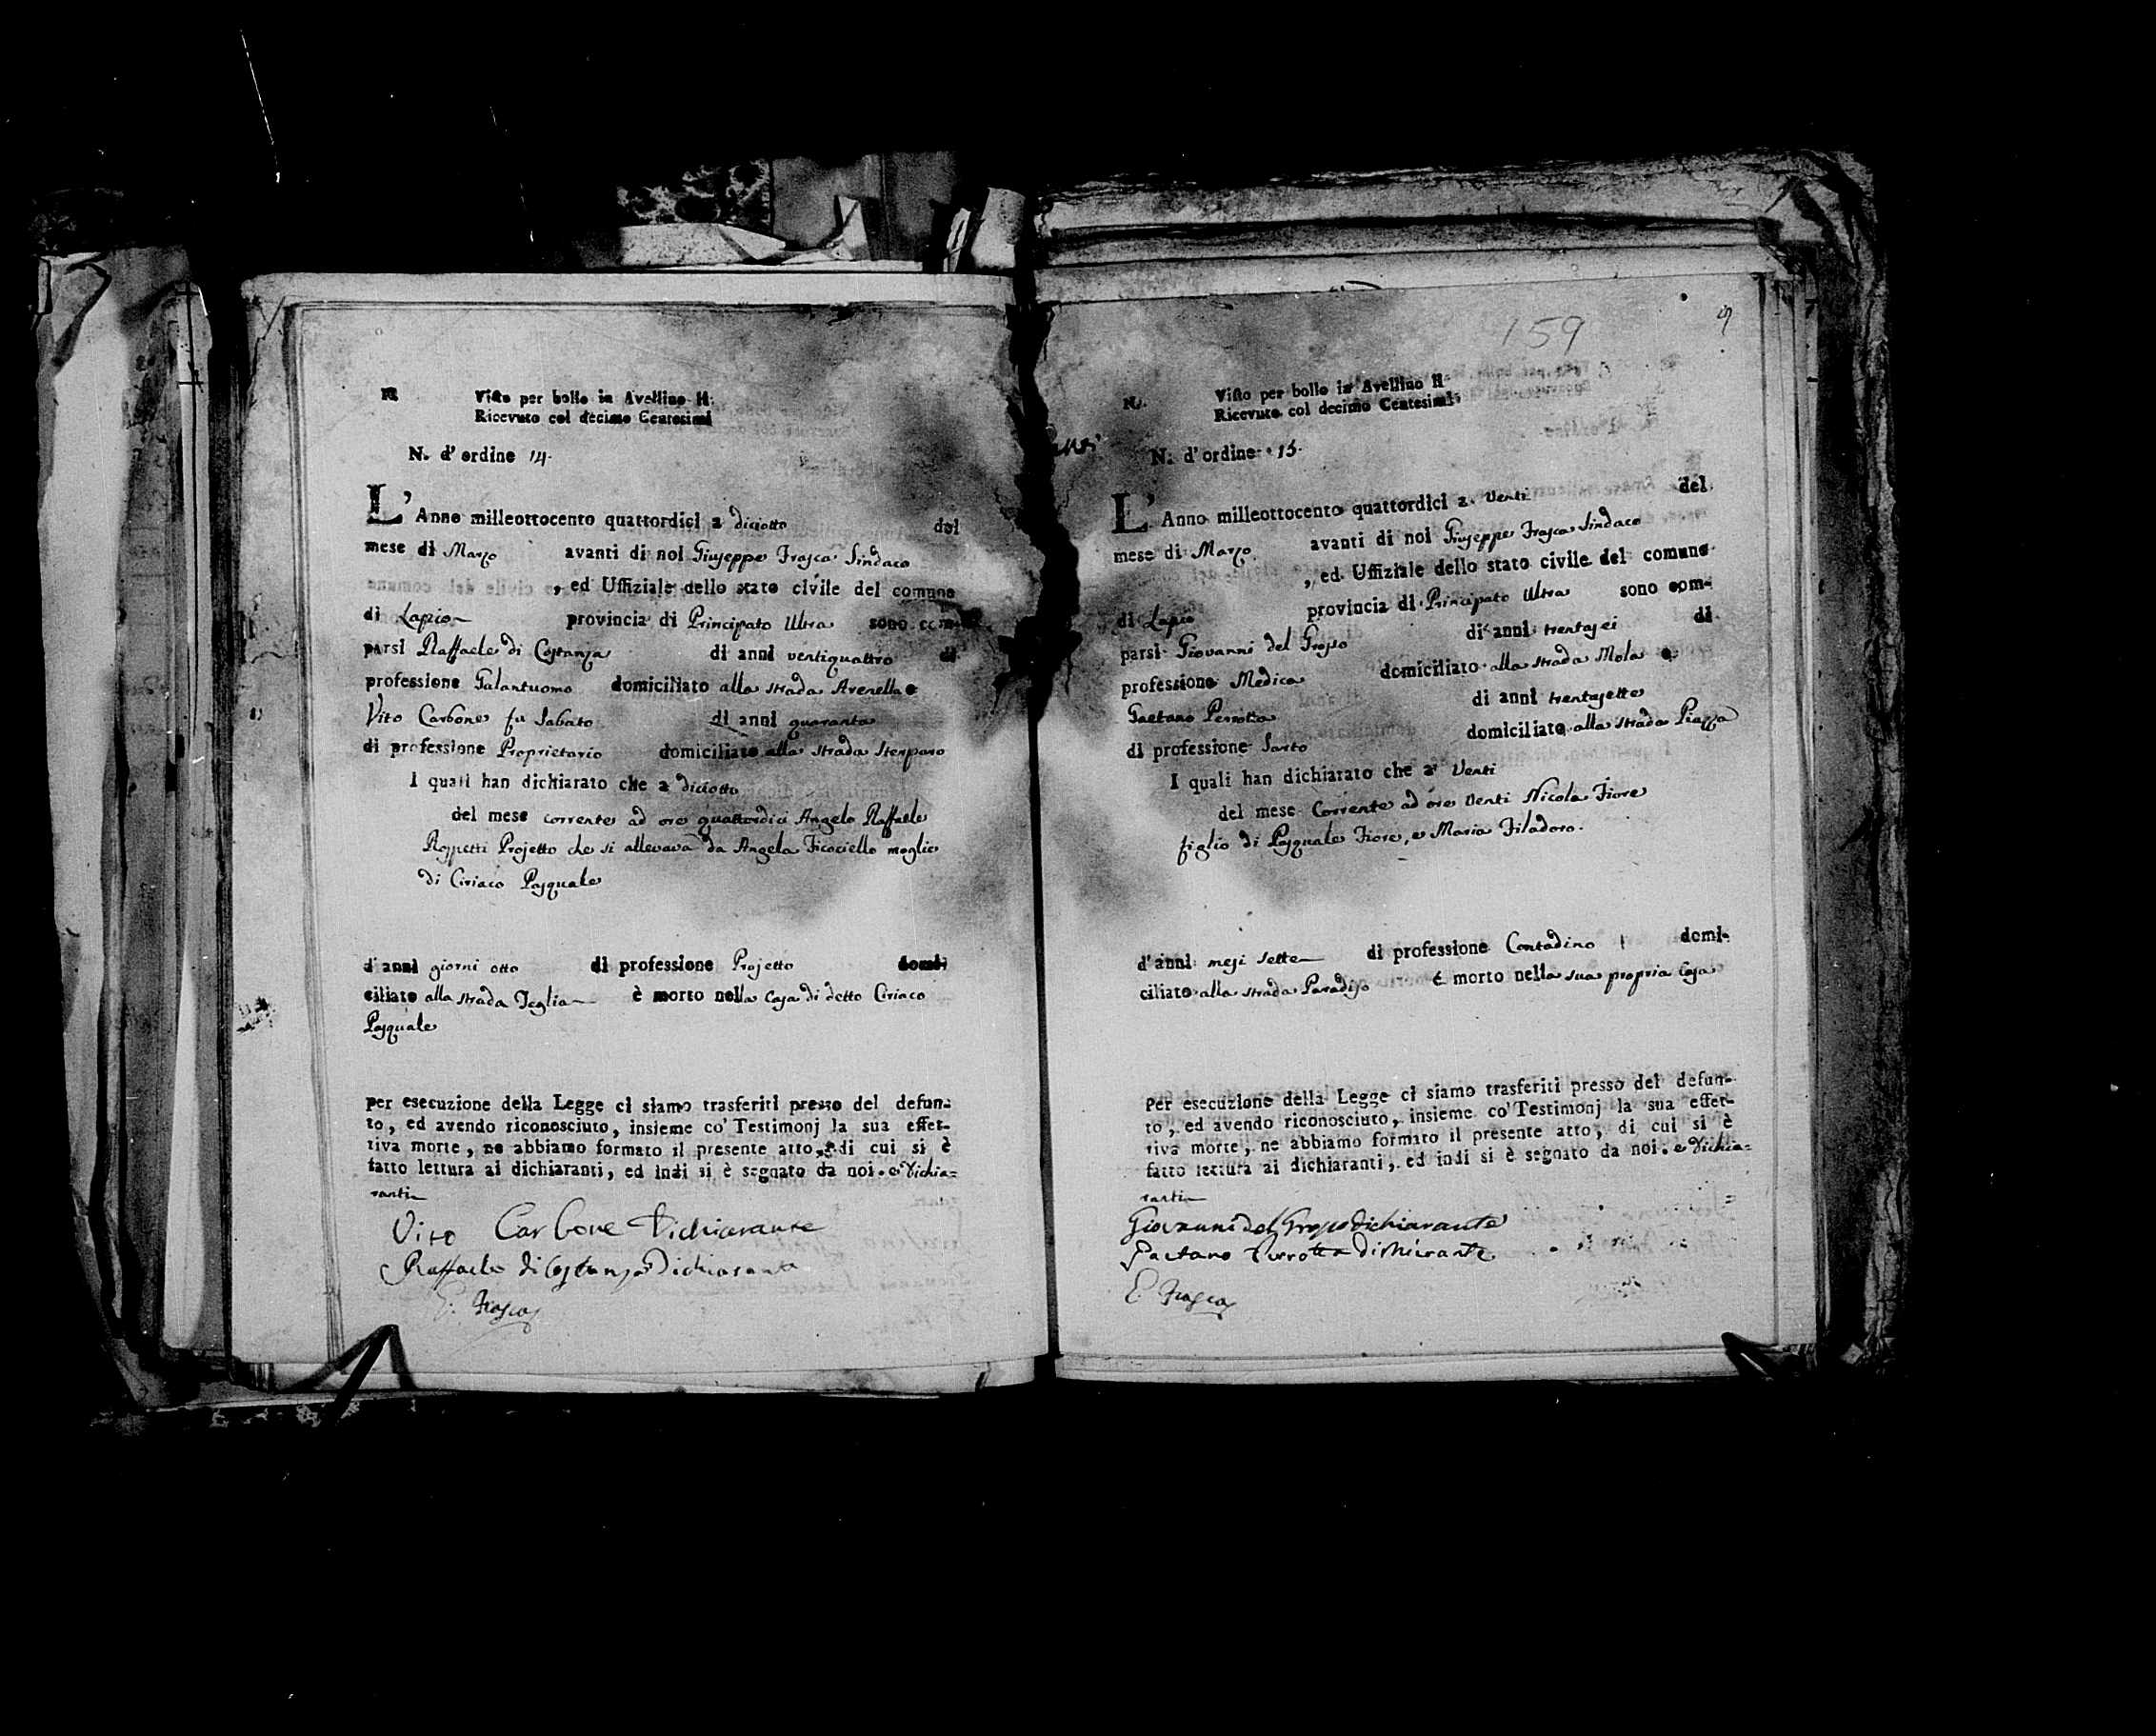 N.
Visto per bollo in Avellino Il
Ricevuto col decimo Centesimi
N. d'ordine 14.
L'Anno milleottocento quattordici a diciotto del
mese di Marzo avanti di noi Giuseppe Frasca Sindaco
, ed Uffiziale dello stato civile del comune
di Lapio provincia di Principato Ultra sono com-
parsi Raffaele di Costanza di anni ventiquattro di
professione Galantuomo domiciliato alla strada Arenella e
Vito Carbone fu Sabato di anni quaranta
di professione Proprietario domiciliato alla strada Stenparo
I quali han dichiarato che a diciotto
del mese corrente ad ore quattordici Angelo Raffaele
Rospetti Projetto che si allevava da Angela Ficociello moglie
di Ciriaco Pasquale
d'anni giorni otto di professione Projetto domi-
ciliato alla strada Teglia è morto nella Casa di detto Ciriaco
Pasquale
Per esecuzione della Legge ci siamo trasferiti presso del defun-
to, ed avendo riconosciuto, insieme co' Testimonj la sua effet-
tiva morte, ne abbiamo formato il presente atto, di cui si è
fatto lettura ai dichiaranti, ed indi si è segnato da noi. e Dichia=
ranti
Vito Carbone Dichiarante
Raffaele di Costanza Dichiarante
Frasca
159
N.
Visto per bollo in Avellino Il
Ricevuto col decimo Centesimi
N. d'ordine 15.
L'Anno milleottocento quattordici a Venti del
mese di Marzo avanti di noi Giuseppe Frasca Sindaco
, ed Uffiziale dello stato civile del comune
di Lapio provincia di Principato Ultra sono com-
parsi Giovanni del Grosso di anni trentasei di
professione Medico domiciliato alla strada Mola e
Gaetano Perrotta di anni trentasette
di professione Sarto domiciliato alla strada Piazza
I quali han dichiarato che a Venti
del mese Corrente ad ore Venti Nicola Fiore
figlio di Pasquale Fiore, e Maria Filadoro.
d'anni mesi sette di professione Contadino domi-
ciliato alla strada Paradiso è morto nella sua propria Casa
Per esecuzione della Legge ci siamo trasferiti presso del defun-
to, ed avendo riconosciuto, insieme co' Testimonj la sua effet-
tiva morte, ne abbiamo formato il presente atto, di cui si è
fatto lettura ai dichiaranti, ed indi si è segnato da noi. e Dichia=
ranti
Giovanni del Grosso dichiarante
Gaetano Perrotta dichiarante
Frasca